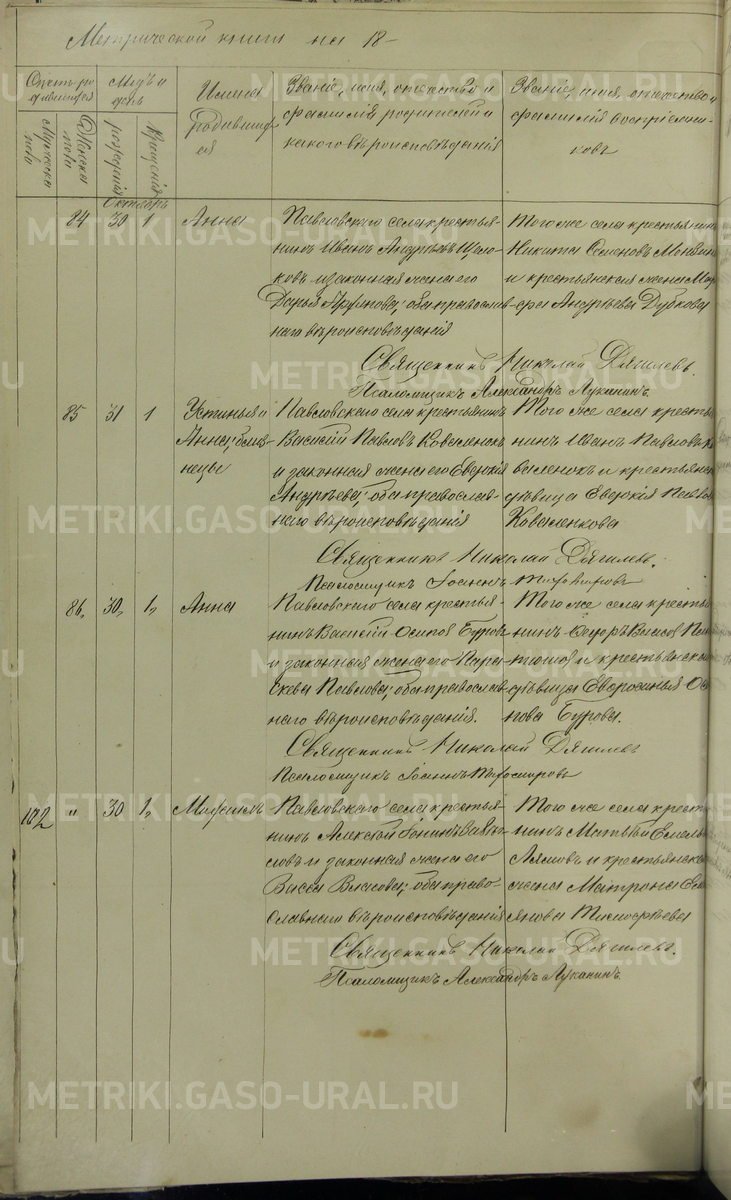 Метрической книги на 18-
Счетъ ро
дившихся
Мужеска
пола
Женска
пола
Мѣсяцъ и
день
рожденія
Крещенія
Имена
родивших
ся
Званіе, имя, отчество и
фамилія родителей и
какого вѣроисповѣданія
Званіе, имя, отчество и
фамилія воспріемни-
ковъ
Октябрь
84 30 1 Анна
Павловскаго села крестья-
нинъ Иванъ Андреевъ
ковъ и законная жена его
Дарья оба православ-
наго вѣроисповѣданія
Того же села крестьянин
Никита Семеновъ
и крестьянская жена Мар
фа Андреева Дубкова
Священникъ Николай Дягилевъ.
Псаломщикъ Александръ Луканинъ.
85 31 1 Устинья и
Анна, близ
нецы
Павловскаго села крестьянинъ
Василій Павловъ Коваленокъ
и законная жена его Евдокія
Андреева, оба православ-
наго вѣроисповѣданія
Того же села крестья
нинъ Иванъ Павловъ Ко
валенокъ и крестьянск
дѣвица Евдокія Павлов
Коваленкова
Священникъ Николай Дягилевъ.
Псаломщикъ Іоаннъ
86, 30, 1, Анна
Павловскаго села крестья-
нинъ Василій Осиповъ Буровъ
и законная жена его Пара-
скева Павлова, оба православ-
наго вѣроисповѣданія.
Того же села крестья
нинъ Ѳедоръ
и крестьянская
дѣвица Евфросинья Оси
пова Бурова.
Священникъ Николай Дягилевъ
Псаломщикъ Іоаннъ
102 " 30 1, Максимъ
Павловскаго села крестья-
нинъ Алексѣй
и законная жена его
Васса Власова, оба право-
славнаго вѣроисповѣданія
Того же села крестья
нинъ Матвѣй Емель
и крестьянская
жена Матрона
Тимофѣева
Священникъ Николай Дягилевъ.
Псаломщикъ Александръ Луканинъ.
METRIKI.GASO-URAL.RU